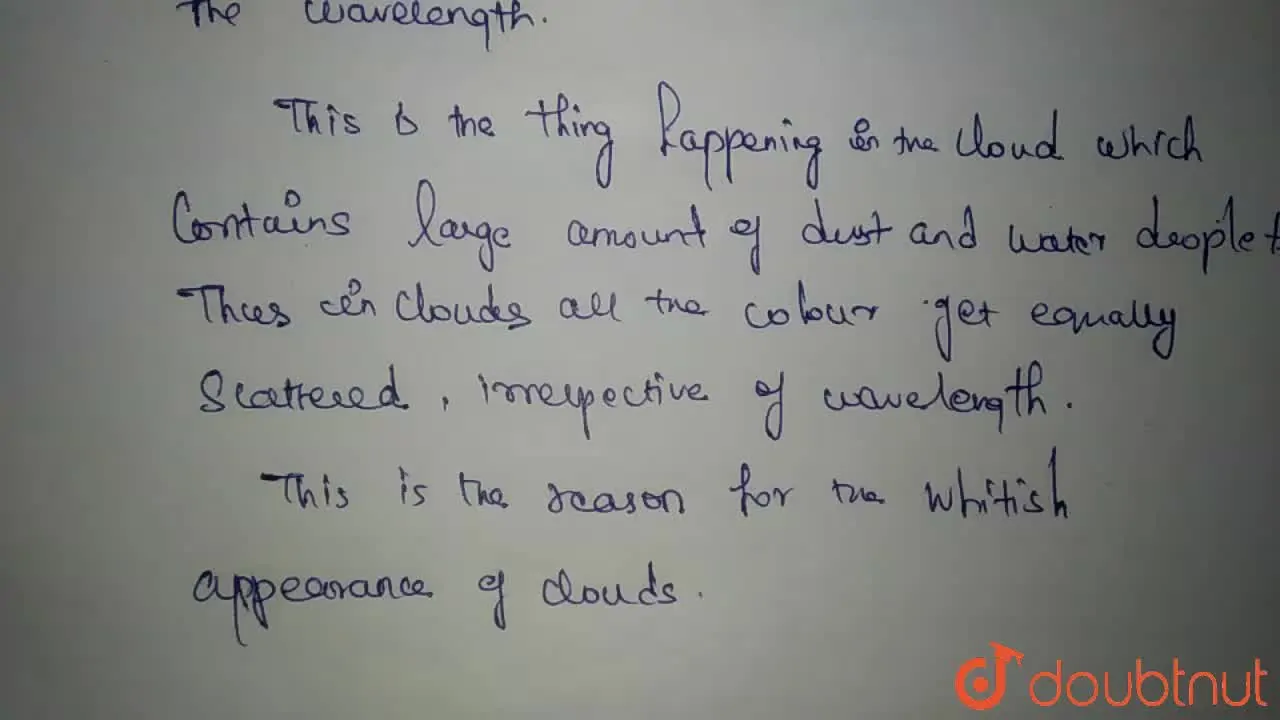 The wavelength.
This is the thing happening in the cloud which
Contains large amount of dust and water droplet
Thus in Clouds all the colour get equally
Scattered, irrespective of wavelength.
This is the reason for the whitish
appearance of clouds.
doubtnut